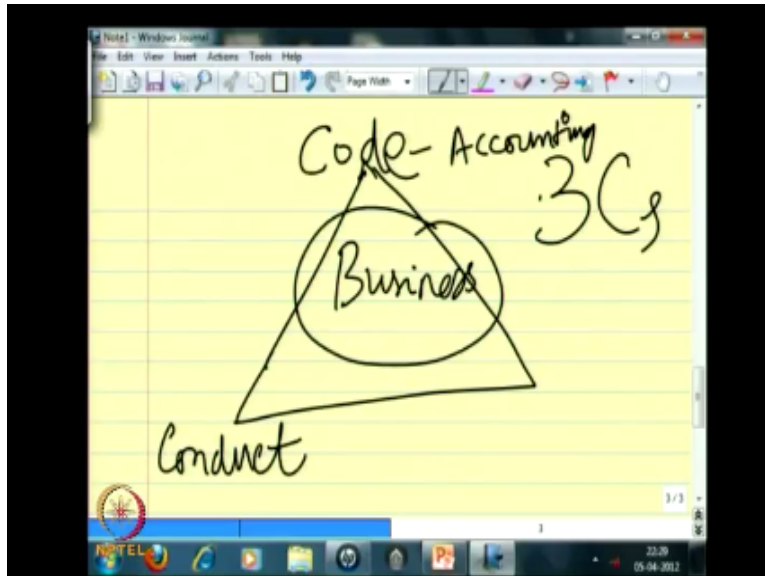 Note1 - Windows Journal
File Edit View Insert Actions Tools Help
Page Width
Code - Accounting
3 Cs
Business
Conduct
3/3
1
NPTEL
22:29
05-04-2012